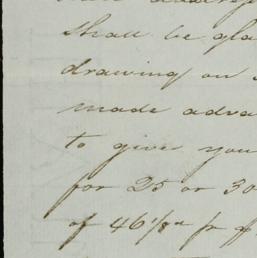 shall be gla
drawing on
made adva
to give you
for 25 or 30
of 46